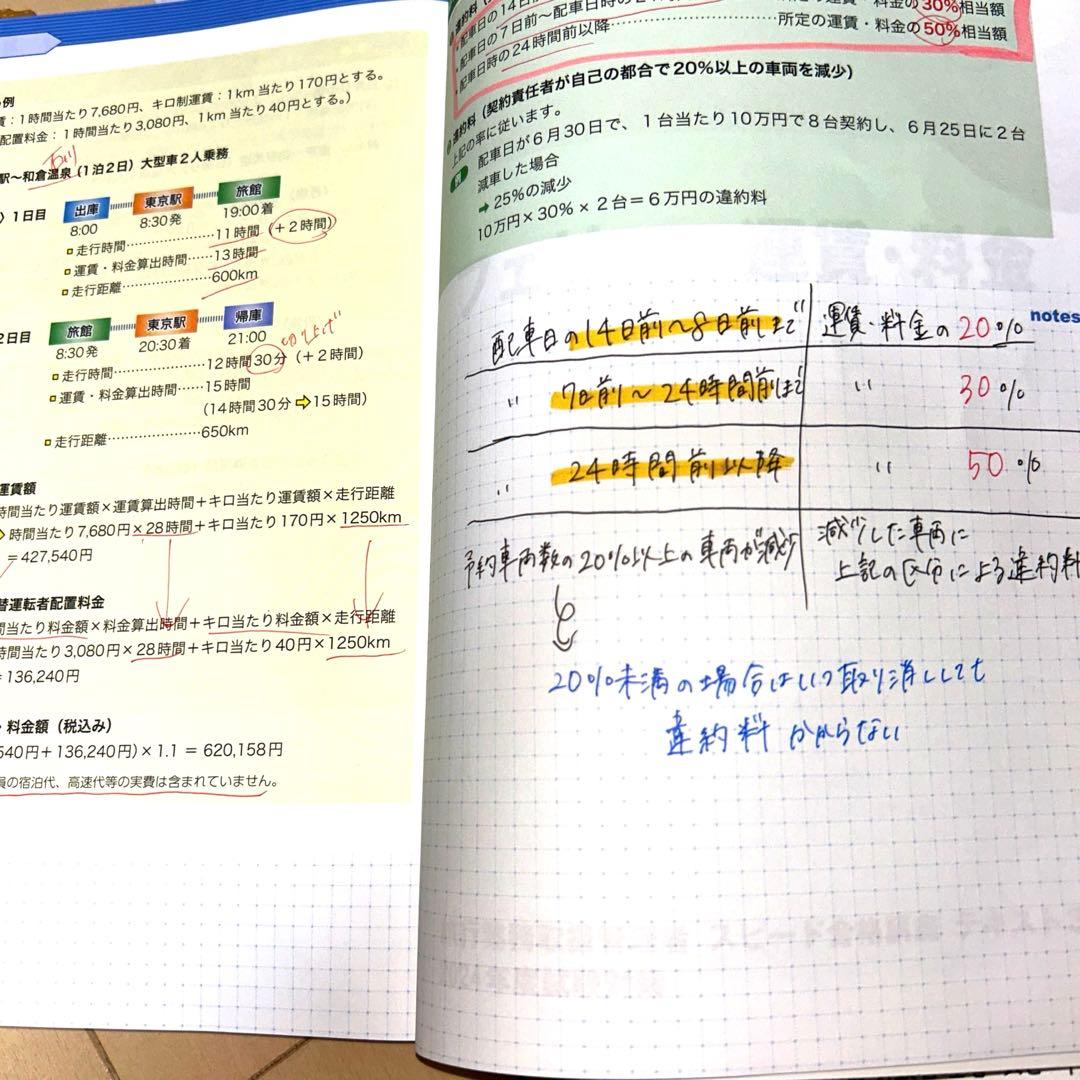 の例
賃：1時間当たり7,680円、キロ制運賃：1km当たり170円とする。
配置料金：1時間当たり3,080円、1km当たり40円とする。）
石川
駅〜和倉温泉（1泊2日）大型車2人乗務
〉1日目
出庫 東京駅 旅館
8:00 8:30発 19:00着
走行時間……………………11時間（＋2時間）
運賃・料金算出時間……13時間
走行距離……………………600km
2日目
旅館 東京駅 帰庫
8:30発 20:30着 21:00
切り上げ
走行時間……………………12時間30分（＋2時間）
運賃・料金算出時間……15時間
（14時間30分➡15時間）
走行距離……………………650km
運賃額
時間当たり運賃額×運賃算出時間＋キロ当たり運賃額×走行距離
時間当たり7,680円×28時間＋キロ当たり170円×1250km
＝427,540円
替運転者配置料金
間当たり料金額×料金算出時間＋キロ当たり料金額×走行距離
時間当たり3,080円×28時間＋キロ当たり40円×1250km
＝136,240円
・料金額（税込み）
540円＋136,240円）×1.1 ＝ 620,158円
員の宿泊代、高速代等の実費は含まれていません。
違約料（
・配車日の14日前
・配車日の7日前〜配車日時の2 料金の30%相当額
・配車日時の24時間前以降……………………所定の運賃・料金の50%相当額
違約料（契約責任者が自己の都合で20%以上の車両を減少）
上記の率に従います。
例 配車日が6月30日で、1台当たり10万円で8台契約し、6月25日に2台
減車した場合
➡ 25%の減少
10万円×30%×2台＝6万円の違約料
notes
配車日の14日前〜8日前まで 運賃・料金の20%
〃 7日前〜24時間前まで 〃 30%
〃 24時間前以降 〃 50%
予約車両数の20%以上の車両が減少 減少した車両に
上記の区分による違約料
20%未満の場合はいつ取り消ししても
違約料かからない